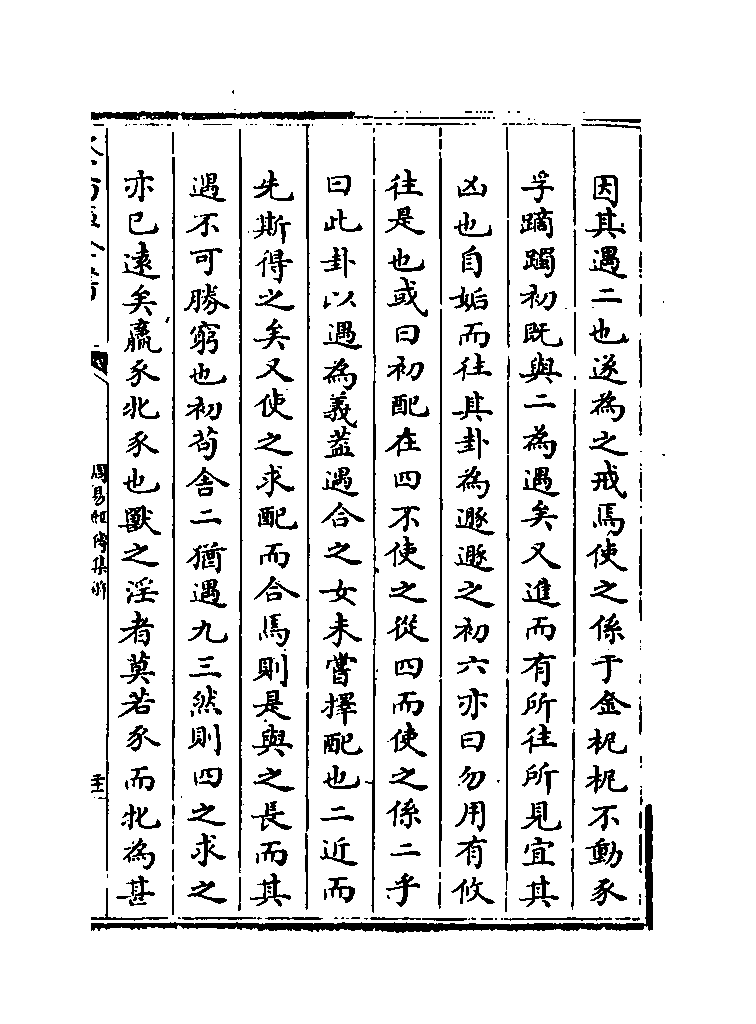 因其遇二也遂為之戒焉使之係于金柅柅不動豕
孚蹢躅初既與二為遇矣又進而有所往所見宜其
凶也自姤而往其卦為遯遯之初六亦曰勿用有攸
往是也或曰初配在四不使之從四而使之係二乎
曰此卦以遇為義蓋遇合之女未嘗擇配也二近而
先斯得之矣又使之求配而合焉則是與之長而其
遇不可勝窮也初苟舍二猶遇九三然則四之求之
亦已遠矣羸豕牝豕也獸之淫者莫若豕而牝為甚